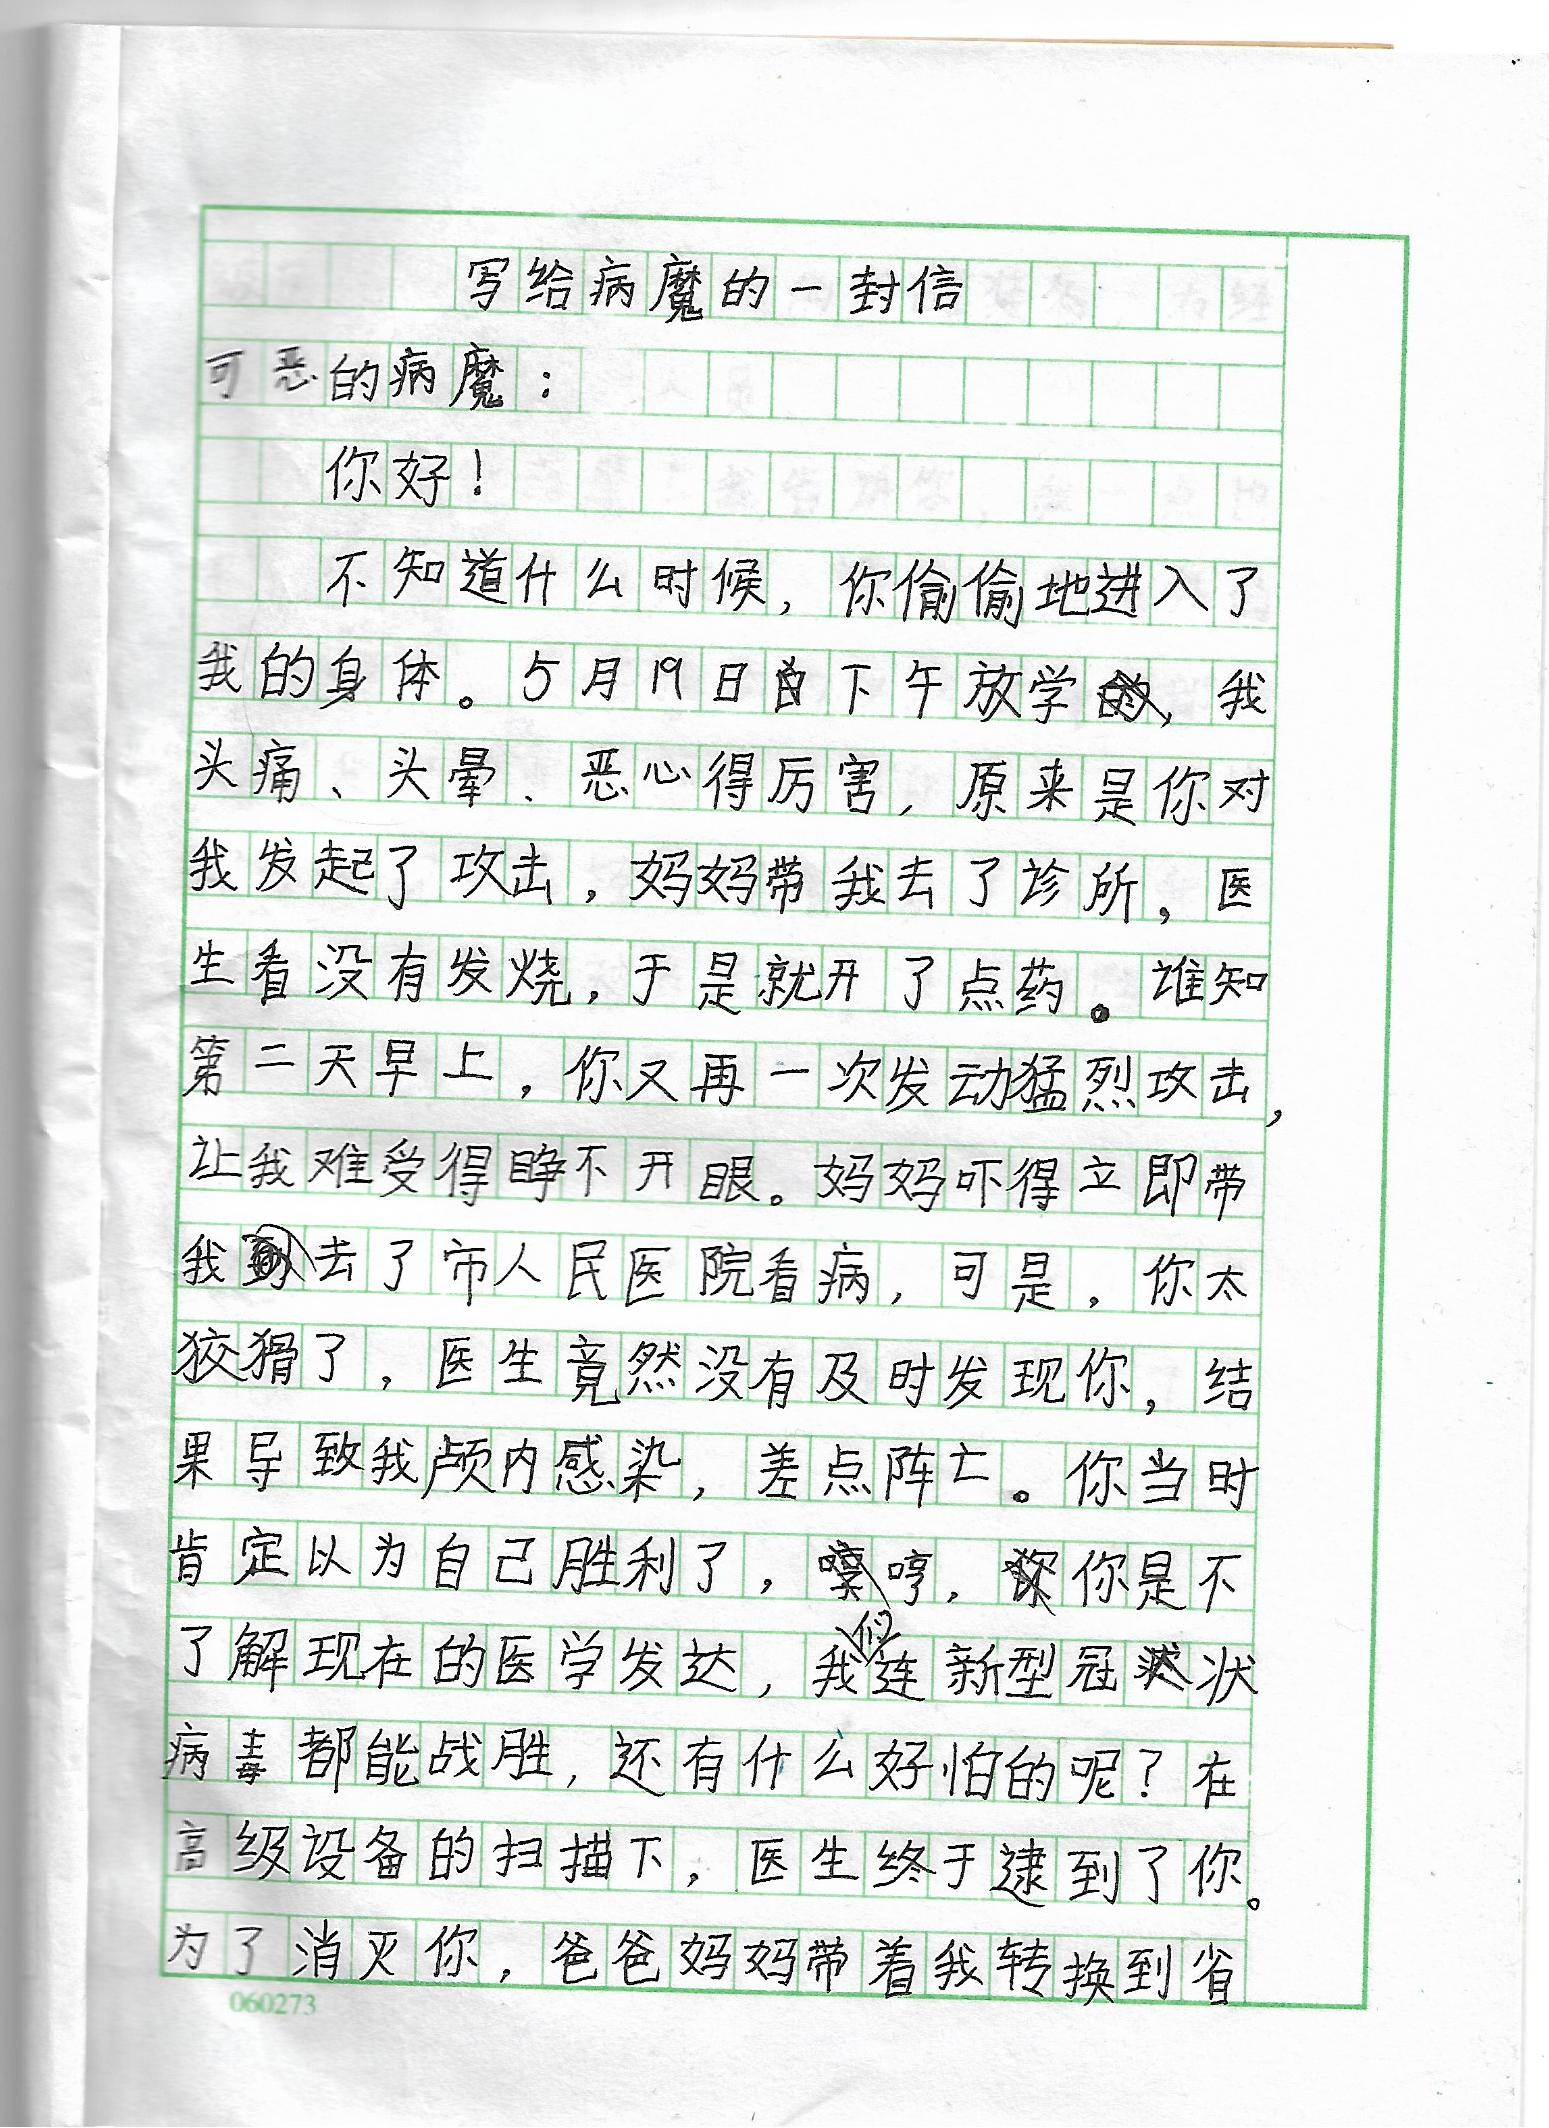 写给病魔的一封信
可恶的病魔：
你好！
不知道什么时候，你偷偷地进入了
我的身体。5月19日的下午放学，我
头痛、头晕、恶心得厉害，原来是你对
我发起了攻击，妈妈带我去了诊所，医
生看没有发烧，于是就开了点药。谁知
第二天早上，你又再一次发动猛烈攻击，
让我难受得睁不开眼。妈妈吓得立即带
我去了市人民医院看病，可是，你太
狡猾了，医生竟然没有及时发现你，结
果导致我颅内感染，差点阵亡。你当时
肯定以为自己胜利了，哼，你是不
了解现在的医学发达，我们连新型冠状
病毒都能战胜，还有什么好怕的呢？在
高级设备的扫描下，医生终于逮到了你。
为了消灭你，爸爸妈妈带着我转换到省
060273